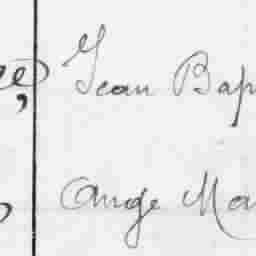 Jean Bap
Ange Ma